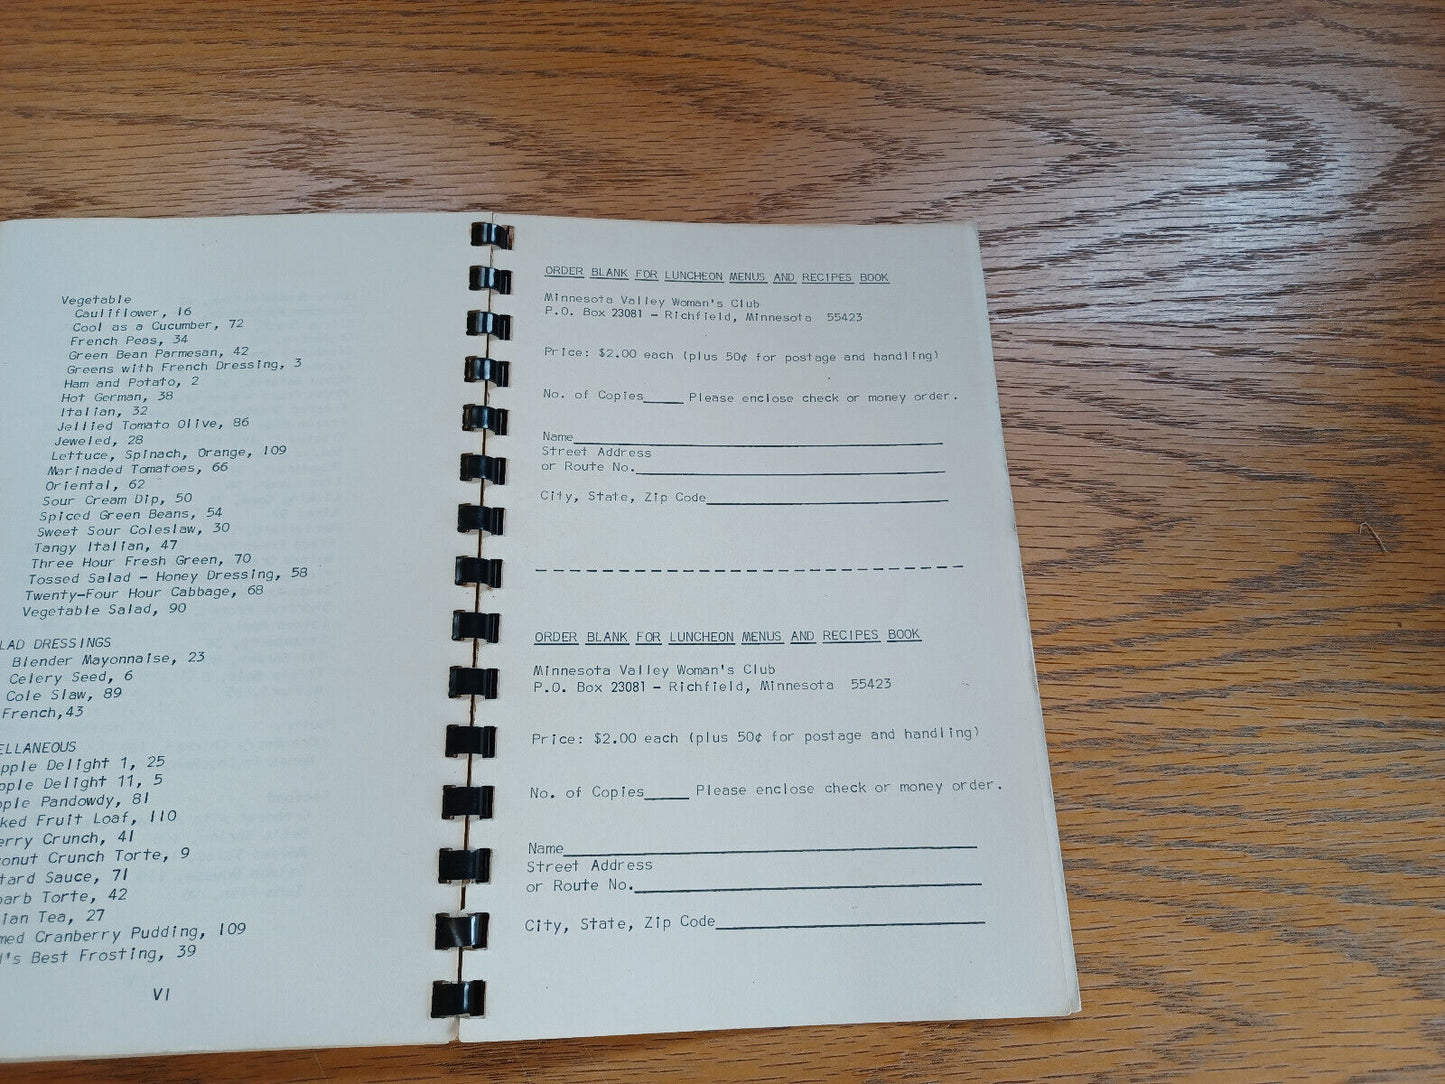 Vegetable
Cauliflower, 16
Cool as a Cucumber, 72
French Peas, 34
Green Bean Parmesan, 42
Greens with French Dressing, 3
Ham and Potato, 2
Hot German, 38
Italian, 32
Jellied Tomato Olive, 86
Jeweled, 28
Lettuce, Spinach, Orange, 109
Marinaded Tomatoes, 66
Oriental, 62
Sour Cream Dip, 50
Spiced Green Beans, 54
Sweet Sour Coleslaw, 30
Tangy Italian, 47
Three Hour Fresh Green, 70
Tossed Salad - Honey Dressing, 58
Twenty-Four Hour Cabbage, 68
Vegetable Salad, 90
LAD DRESSINGS
Blender Mayonnaise, 23
Celery Seed, 6
Cole Slaw, 89
French,43
ELLANEOUS
pple Delight 1, 25
pple Delight 11, 5
ple Pandowdy, 81
ked Fruit Loaf, 110
erry Crunch, 41
conut Crunch Torte, 9
tard Sauce, 71
barb Torte, 42
ian Tea, 27
med Cranberry Pudding, 109
d's Best Frosting, 39
VI
ORDER BLANK FOR LUNCHEON MENUS AND RECIPES BOOK
Minnesota Valley Woman's Club
P.O. Box 23081 - Richfield, Minnesota 55423
Price: $2.00 each (plus 50¢ for postage and handling)
No. of Copies_____ Please enclose check or money order.
Name
Street Address
or Route No.
City, State, Zip Code
ORDER BLANK FOR LUNCHEON MENUS AND RECIPES BOOK
Minnesota Valley Woman's Club
P.O. Box 23081 - Richfield, Minnesota 55423
Price: $2.00 each (plus 50¢ for postage and handling)
No. of Copies_____ Please enclose check or money order.
Name
Street Address
or Route No.
City, State, Zip Code